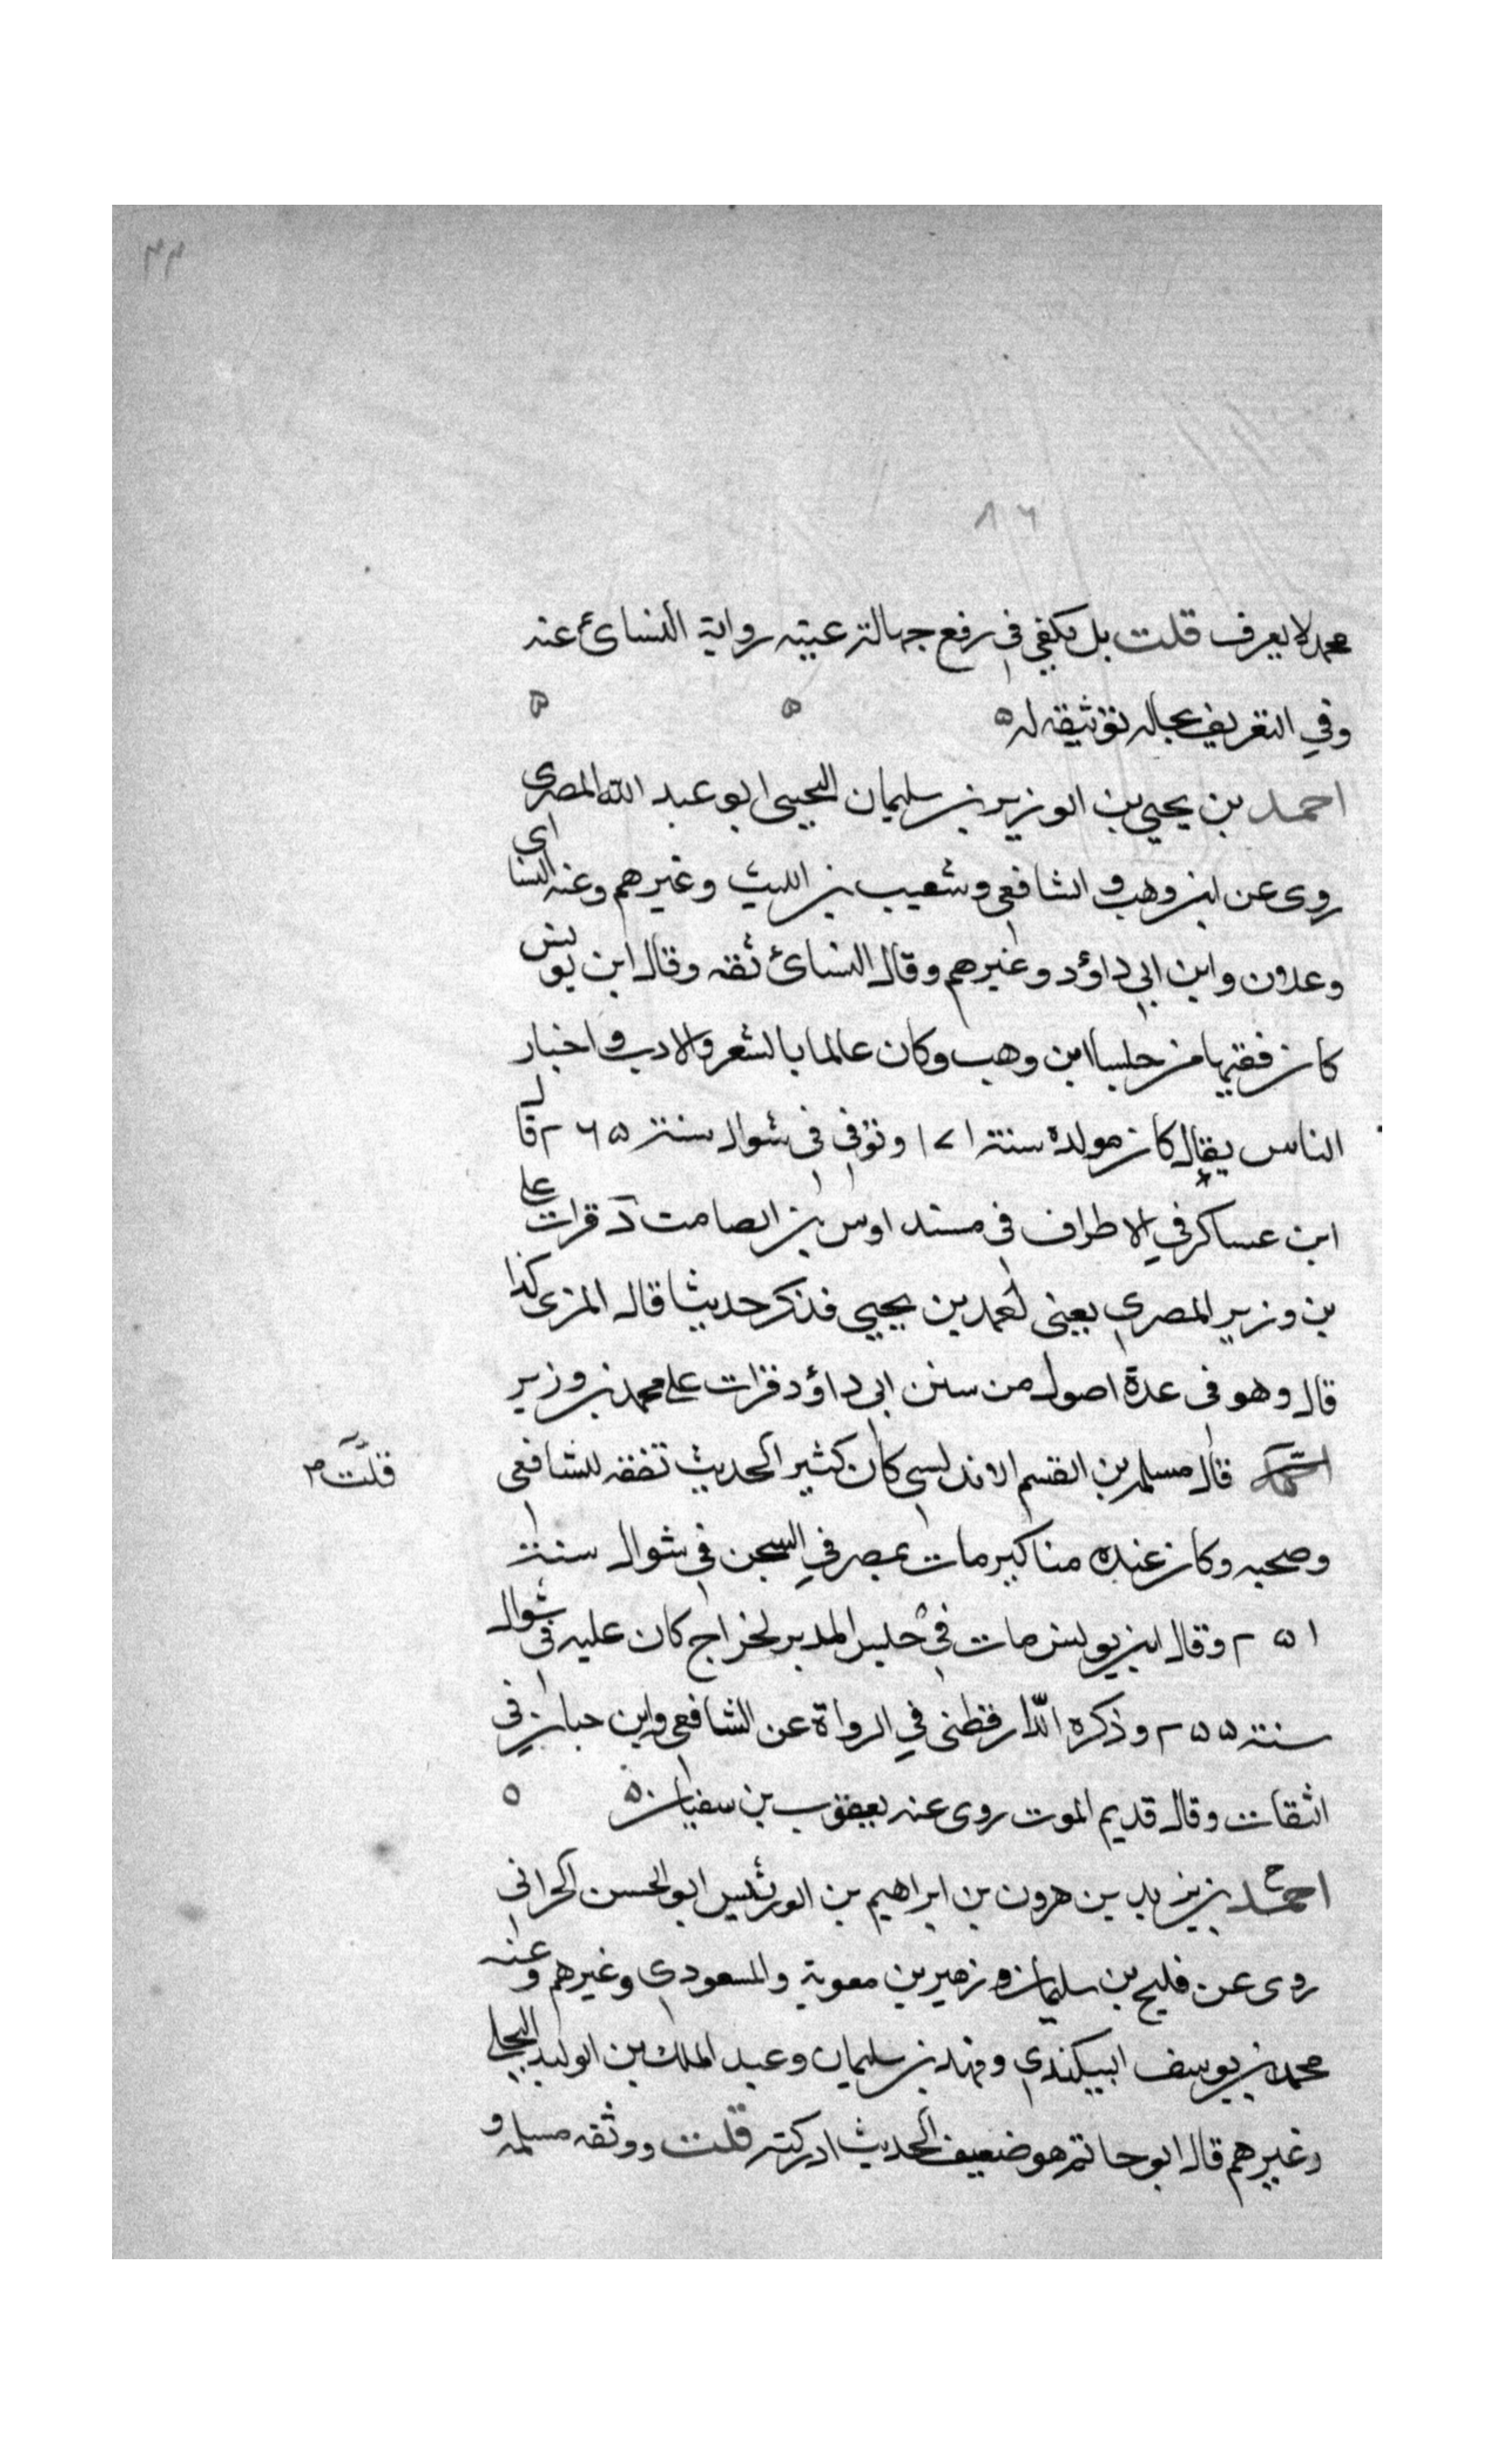 ٣٣
٨٦
محمد لا يعرف قلت بل يكفي في رفع جهالة عينه رواية النسائ عنه
وفي التعريف بحاله توثيقه له ه
احمد بن يحيى بن الوزير بن سليمان التجيبى ابو عبد الله المصرى
روى عن ابن وهب و الشافعى وشعيب بن الليث وغيرهم وعنه النساى
وعلان وابن ابى داؤد وغيرهم وقال النسائ ثقه وقال ابن يونس
كان فقيها من جلسا ابن وهب وكان عالما بالشعر والادب واخبار
الناس يقال كان مولده سنة ١٧١ وتوفى فى شوال سنة ٢٦٥ قال
ابن عساكر في الاطراف فى مسند اوس بن الصامت د قرات على
بن وزير المصرى يعنى احمد بن يحيى فذكر حديثا قال المزى كذا
قال وهو فى عدة اصول من سنن ابى داؤد قرات على محمد بن وزير
قال مسلمة بن القسم الاندلسى كان كثير الحديث تفقه للشافعى
قلت
وصحبه وكان عنده مناكير مات بمصر في السجن فى شوال سنة
٢٥١ وقال ابن يونس مات فى حبس المدبر لخراج كان عليه فى شوال
سنة ٢٥٥ وذكره الدارقطنى في الرواة عن الشافعى وابن حبان فى
الثقات وقال قديم الموت روى عنه يعقوب بن سفيان ه ه
احمد بن يزيد بن هرون بن ابراهيم بن الورتنيس ابو الحسن الحرانى
روى عن فليح بن سليمان و زهير بن معوية والمسعودى وغيرهم وعنه
محمد بن يوسف البيكندى وفهد بن سليمان وعبد الملك بن الوليد البجلى
وغيرهم قال ابو حاتم هو ضعيف الحديث ادركته قلت ووثقه مسلمة و